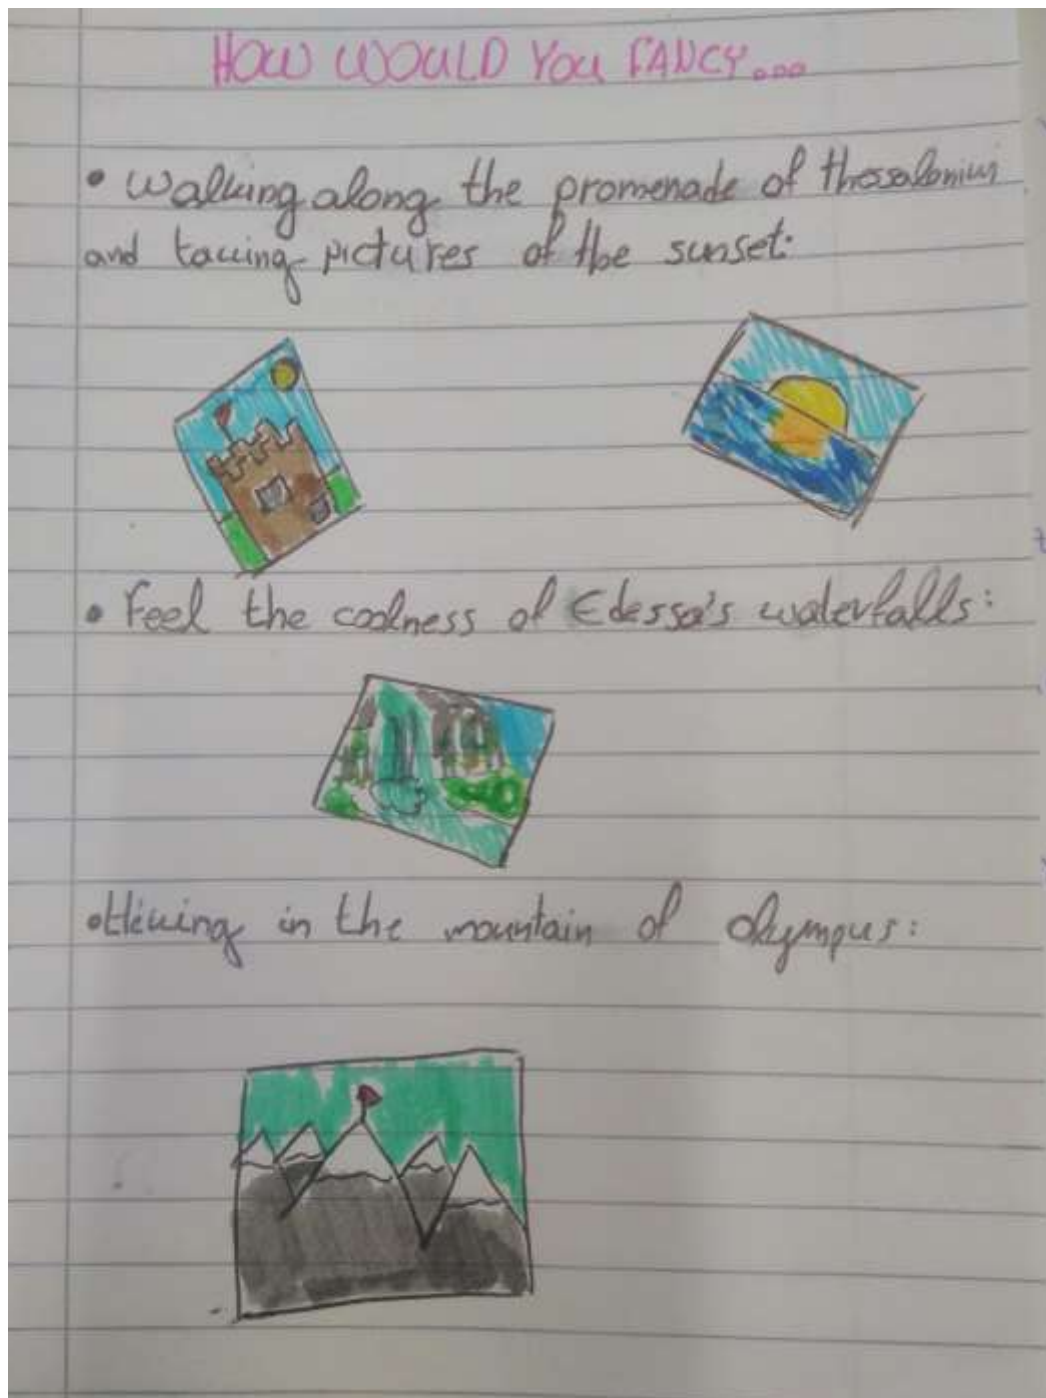 HOW WOULD YOU FANCY...
• Walking along the promenade of thessaloniki
and tacking pictures of the sunset:
• Feel the coolness of Edessa's waterfalls:
• Hiking in the mountain of Olympus: